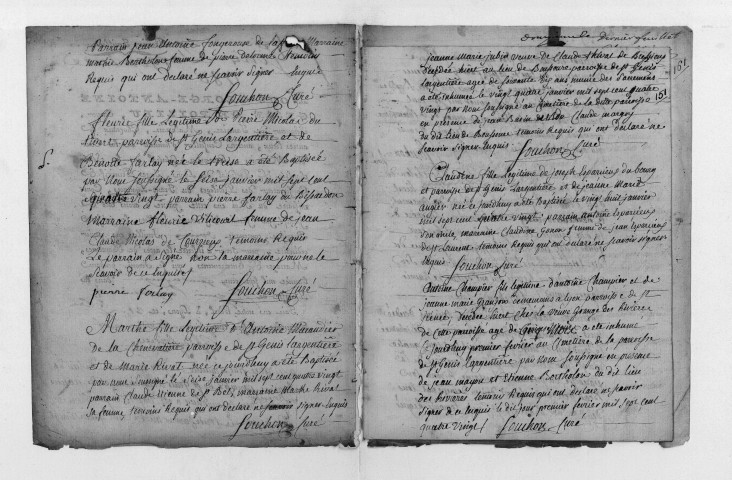 Parrain jean Antoine fongerouse de Marraine
marthe Bertholon femme de pierre Temoins
Requis qui ont declaré ne scavoir signer Enquis
Souchon Curé
fleurie fille Legitime De Pierre Nicolas du
paroisse de st Genis Largentiere et de
Benoite farlay née le treise a été Baptisée
par Nous soussigné le seise janvier mil sept cent
quatre vingt parrain pierre farlay du
Marraine fleurie femme de jean
Claude Nicolas de Courzieu temoins Requis
Le parrain a signé non la marraine pour ne le
scavoir de ce Enquise
pierre farlay Souchon Curé
Marthe fille Legitime d'Antoine
De la paroisse de st Genis Largentiere
et de Marie Rivat née ce jourdhuy a été Baptisée
par nous soussigné le seise janvier mil sept cent quatre vingt
parrain Claude de st Bel, marraine Marthe Rivat
sa femme temoins Requis qui ont declaré ne scavoir signer Enquis
Souchon Curé
dernier feuillet
151
jeanne Marie veuve de Claude de
Decedée hier au lieu de paroisse de st Genis
Largentiere agée de soixante dix ans munie des Sacremens
a eté inhumée le vingt quatre janvier mil sept cent quatre
vingt par Nous soussigné au Cimetiere de la ditte paroisse
151
en presence de jean Claude
du dit lieu de temoins Requis qui ont declaré ne
scavoir signer Enquis Souchon Curé
Claudine fille Legitime de joseph du bourg
et paroisse de st Genis Largentiere et de jeanne Marie
née ce jourdhuy a été Baptisée le vingt huit janvier
mil sept cent quatre vingt, parrain Antoine
son oncle, marraine Claudine femme de jean
de st Laurent temoins Requis qui ont declaré ne scavoir signer
Enquis
Souchon Curé
Antoine Champier fils legitime d'antoine Champier et de
jeanne marie demeurants a Lyon paroisse de st
Irenée, Decedé hier chez la veuve Grange des Rivieres
de Cette paroisse agé de a eté inhumé
Ce jourdhuy premier fevrier au Cimetiere de la paroisse
de st Genis Largentiere par Nous soussigné en presence
de jean mayon et Etienne Bertholon du dit lieu
des temoins Requis qui ont declaré ne scavoir
signer de ce Enquis le dit jour premier fevrier mil sept cent
quatre vingt / Souchon Curé